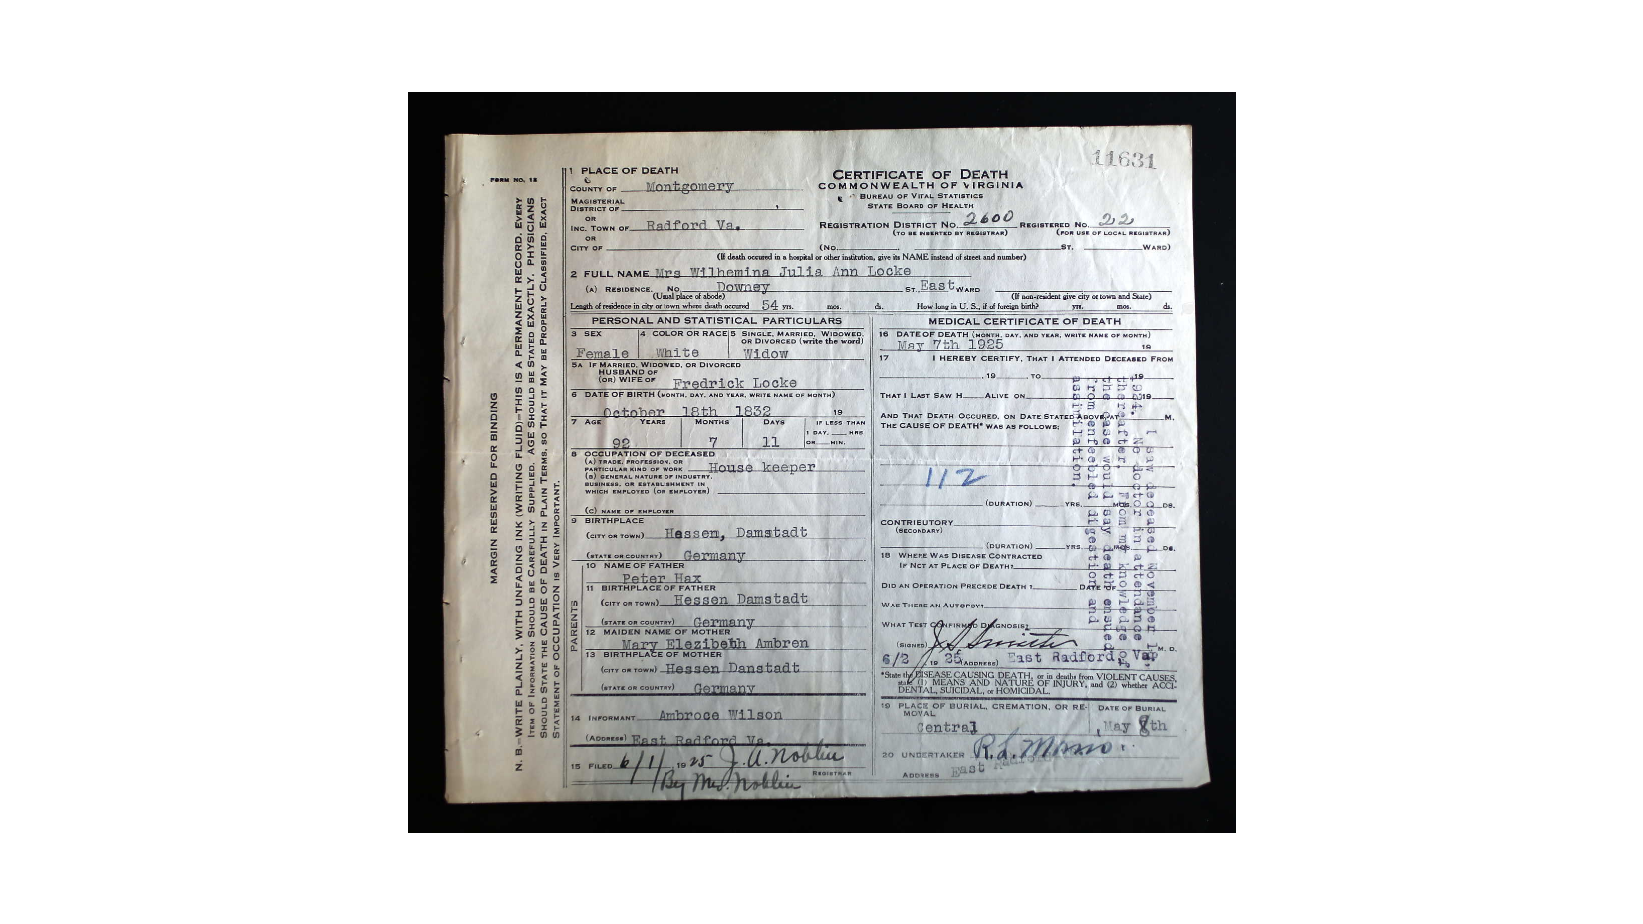 11631
FORM NO. 12
MARGIN RESERVED FOR BINDING
N. B.—WRITE PLAINLY, WITH UNFADING INK (WRITING FLUID)—THIS IS A PERMANENT RECORD. EVERY
ITEM OF INFORMATION SHOULD BE CAREFULLY SUPPLIED. AGE SHOULD BE STATED EXACTLY. PHYSICIANS
SHOULD STATE THE CAUSE OF DEATH IN PLAIN TERMS, SO THAT IT MAY BE PROPERLY CLASSIFIED, EXACT
STATEMENT OF OCCUPATION IS VERY IMPORTANT.
1 PLACE OF DEATH
COUNTY OF Montgomery
MAGISTERIAL
DISTRICT OF
OR
INC. TOWN OF Radford Va.
OR
CITY OF
CERTIFICATE OF DEATH
COMMONWEALTH OF VIRGINIA
BUREAU OF VITAL STATISTICS
STATE BOARD OF HEALTH
REGISTRATION DISTRICT NO. 2600 REGISTERED NO. 22
(TO BE INSERTED BY REGISTRAR) (FOR USE OF LOCAL REGISTRAR)
(NO. ST. WARD)
(If death occured in a hospital or other institution, give its NAME instead of street and number)
2 FULL NAME Mrs Wilhemina Julia Ann Locke
(A) RESIDENCE. NO. Downey ST. East WARD
(Usual place of abode) (If non-resident give city or town and State)
Length of residence in city or town where death occured 54 yrs. mos. ds. How long in U. S., if of foreign birth? yrs. mos. ds.
PERSONAL AND STATISTICAL PARTICULARS
3 SEX 4 COLOR OR RACE 5 SINGLE, MARRIED, WIDOWED,
OR DIVORCED (write the word)
Female White Widow
5A IF MARRIED, WIDOWED, OR DIVORCED
HUSBAND OF
(OR) WIFE OF Fredrick Locke
6 DATE OF BIRTH (MONTH, DAY, AND YEAR, WRITE NAME OF MONTH)
October 18th 1832 19
7 AGE YEARS MONTHS DAYS IF LESS THAN
1 DAY, HRS
OR MIN.
92 7 11
8 OCCUPATION OF DECEASED
(A) TRADE, PROFESSION, OR
PARTICULAR KIND OF WORK House keeper
(B) GENERAL NATURE OF INDUSTRY,
BUSINESS, OR ESTABLISHMENT IN
WHICH EMPLOYED (OR EMPLOYER)
(C) NAME OF EMPLOYER
9 BIRTHPLACE
(CITY OR TOWN) Hessen, Damstadt
(STATE OR COUNTRY) Germany
PARENTS
10 NAME OF FATHER
Peter Hax
11 BIRTHPLACE OF FATHER
(CITY OR TOWN) Hessen Damstadt
(STATE OR COUNTRY) Germany
12 MAIDEN NAME OF MOTHER
Mary Elezibeth Ambren
13 BIRTHPLACE OF MOTHER
(CITY OR TOWN) Hessen Danstadt
(STATE OR COUNTRY) Germany
14 INFORMANT Ambroce Wilson
(ADDRESS) East Radford Va.
15 FILED 6/1/ 1925 J. A. Noblin
REGISTRAR
By Mrs. Noblin
MEDICAL CERTIFICATE OF DEATH
16 DATE OF DEATH (MONTH, DAY, AND YEAR, WRITE NAME OF MONTH)
May 7th 1925 19
17 I HEREBY CERTIFY, THAT I ATTENDED DECEASED FROM
, 19 , TO , 19
THAT I LAST SAW H ALIVE ON 19
AND THAT DEATH OCCURED, ON DATE STATED ABOVE, AT M.
THE CAUSE OF DEATH* WAS AS FOLLOWS:
112
(DURATION) YRS. MOS. DS.
CONTRIBUTORY
(SECONDARY)
(DURATION) YRS. MOS. DS.
18 WHERE WAS DISEASE CONTRACTED
IF NOT AT PLACE OF DEATH?
DID AN OPERATION PRECEDE DEATH? DATE OF
WAS THERE AN AUTOPSY?
WHAT TEST CONFIRMED DIAGNOSIS?
(SIGNED) M. D.
6/2 1925 (ADDRESS) East Radford, Va
I saw deceased November
1924. No doctor in attendance
thereafter. From my knowledge of
the case would say death ensued
from enfeebled digestion and
assimilation.
*State the DISEASE CAUSING DEATH, or in deaths from VIOLENT CAUSES,
state (1) MEANS AND NATURE OF INJURY, and (2) whether ACCI-
DENTAL, SUICIDAL, or HOMICIDAL.
19 PLACE OF BURIAL, CREMATION, OR RE-
MOVAL
DATE OF BURIAL
Central May 8th
20 UNDERTAKER
ADDRESS East Radford